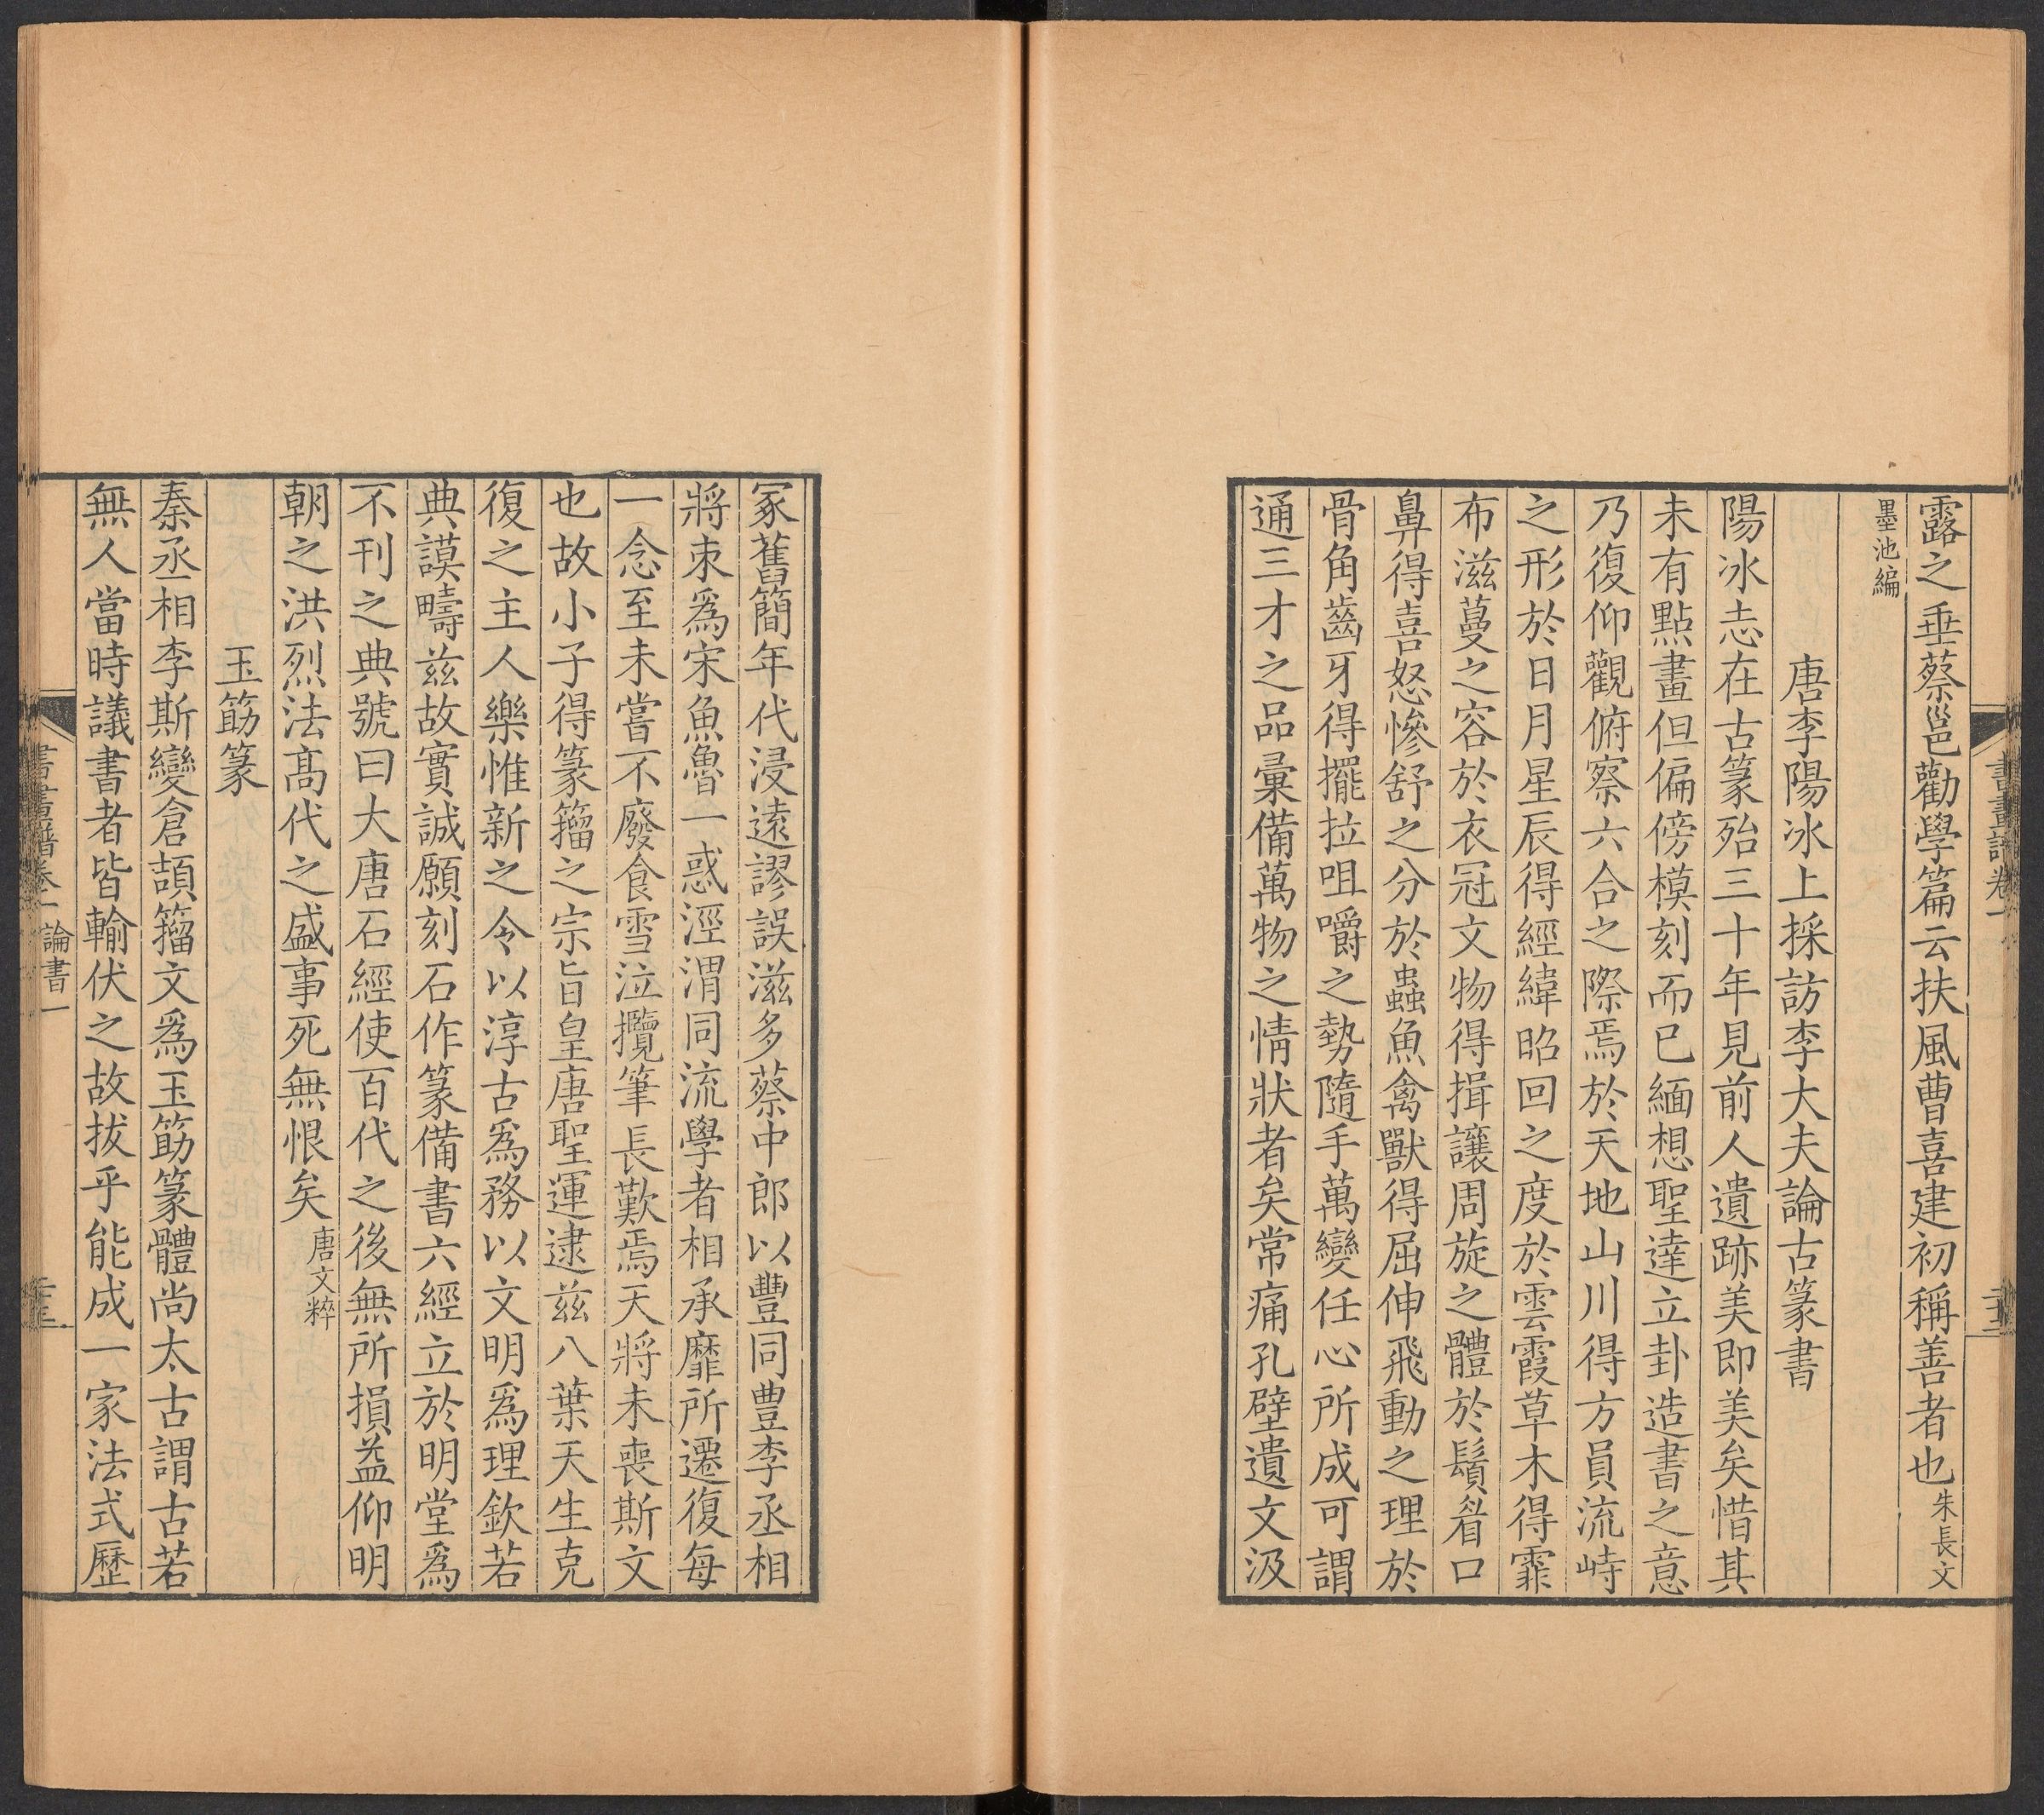 露之垂蔡邕勸學篇云扶風曹喜建初稱善者也朱長文
墨池編
唐李陽冰上採訪李大夫論古篆書
陽冰志在古篆殆三十年見前人遺跡美即美矣惜其
未有點畫但偏傍模刻而已緬想聖達立卦造書之意
乃復仰觀俯察六合之際焉於天地山川得方員流峙
之形於日月星辰得經緯昭回之度於雲霞草木得霏
布滋蔓之容於衣冠文物得揖讓周旋之體於鬚眉口
鼻得喜怒慘舒之分於蟲魚禽獸得屈伸飛動之理於
骨角齒牙得擺拉咀嚼之勢隨手萬變任心所成可謂
通三才之品彙備萬物之情狀者矣常痛孔壁遺文汲
冢舊簡年代浸遠謬誤滋多蔡中郎以豐同豊李丞相
將朿爲宋魚魯一惑涇渭同流學者相承靡所遷復每
一念至未嘗不廢食雪泣攬筆長歎焉天將未喪斯文
也故小子得篆籀之宗旨皇唐聖運逮兹八葉天生克
復之主人樂惟新之令以淳古爲務以文明爲理欽若
典謨疇兹故實誠願刻石作篆備書六經立於明堂爲
不刊之典號曰大唐石經使百代之後無所損益仰明
朝之洪烈法高代之盛事死無恨矣唐文粹
玉筯篆
秦丞相李斯變倉頡籀文爲玉筯篆體尚太古謂古若
無人當時議書者皆輸伏之故拔乎能成一家法式歷
書畫譜卷一 論書一